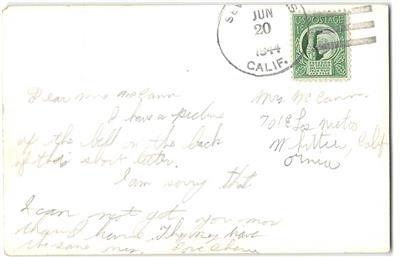 JUN
20
1944
CALIF.
U.S. POSTAGE
Dear Mrs McCann
I have a picture
of the bell on the back
of this short letter.
I am sorry that
I can not get you mor
They may have
the same Love
Mrs. McCann
701 E Los Nietos
Whittier, Calif
ornia